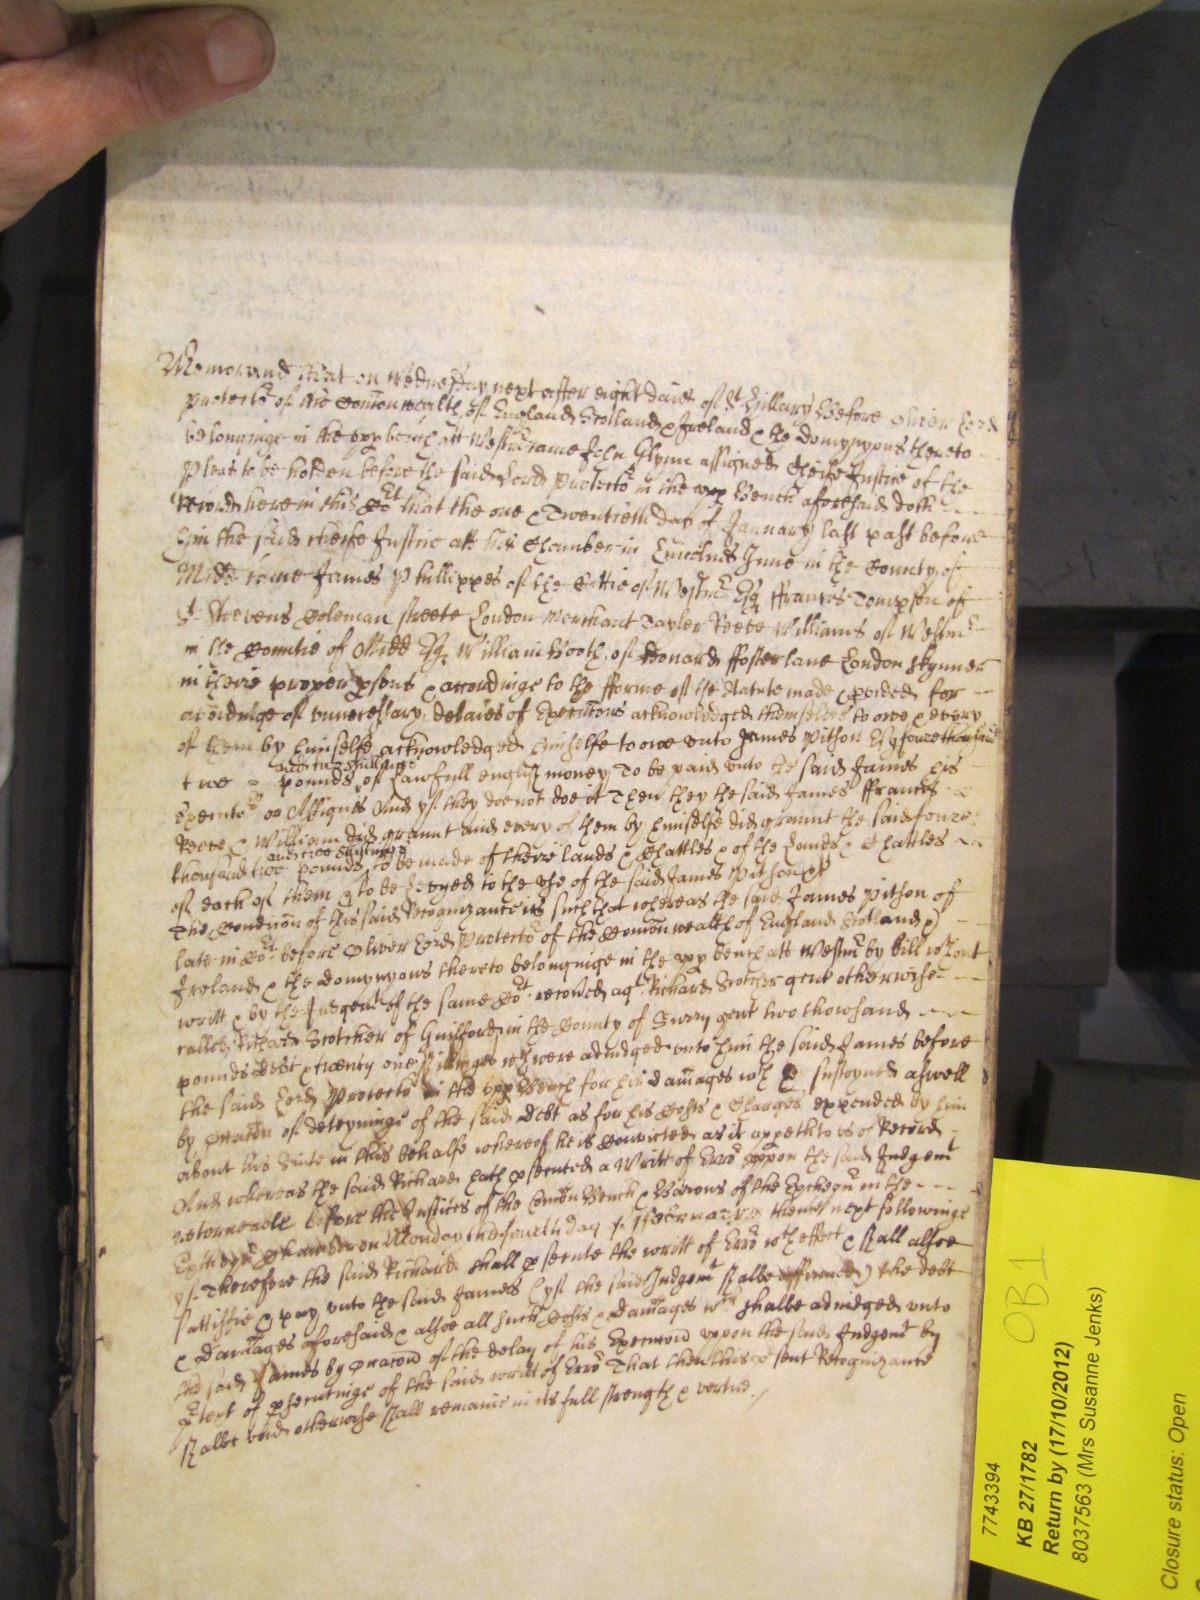 Memorand that on Wednesday next after eight daies of St Hillary Before Oliver Lord
Protector of the Comonwealth of England Scotland & Ireland & the Domynyons thereto
belonginge in the upp bench att Westmr came John Glynn assigned Cheife Justice of the
pleas to be holden before the said Lord Protector in the upp Bench aforesaid doth
Record here in this Cort that the one & Twentieth day of January last past before
him the said cheife Justice att his Chamber in Lincolnes Inne in the County of
Midd came James Phillippes of the Cittie of Westmr Esq ffrancis Tompson of
St Stevens Coleman streete London Merchant Tayler Reece Williams of Westmr
in the Countie of Midd Esq William Booth of Leonard ffoster lane London Skynner
in theire proper psons & accordinge to the fforme of the Statute made & pvided for
avoidinge of unnecessary delaies of Execucons acknowledged themselves to owe & every
of them by himselfe acknowledged himselfe to owe unto James Pitson Esq foure thousand
and two shillings
two pounds of lawfull english money To be paid unto the said James his
Executors or Assignes And yf they doe not doe it Then they the said James ffrancis
Reece & William did graunt and every of them by himselfe did graunt the said foure
and two shillings
thousand two pounds to be made of theire lands & Chattles & of the Lands & Chattles
of each of them & to be levyed to the use of the said James Pitson &c
The Condicion of this said Recognizance is such that whereas the said James Pitson of
late in Cort before Oliver Lord Protector of the Comonwealth of England Scotland &
Ireland & the Domynyons thereto belonginge in the upp bench att Westmr by bill wthout
writt & by the Judgent of the same Cort recoved agt Richard Stotcher gent otherwise
called Richard Stotcher of Guilford in the County of Surry gent two thowsand
pounds debt & twenty one shillinges wch were adiudged unto him the said James before
the said Lord Protector in the upp Bench for his damages wch he susteyned aswell
by occacon of deteyninge of the said debt as for his Costs & Charges expended by him
about his Suite in this behalfe whereof he is Convicted as it appeth to us of Record
And whereas the said Richard hath psecuted a Writt of Error uppon the said Judgemt
retorneable before the Justices of the Comon Bench & Barons of the Exchequr in the
Exchequr Chamber on Monday the fourth day of then next followinge
yf Therefore the said Richard shall psecute the writt of Error wth effect & shall alsoe
sattisfie & pay unto the said James (yf the said Judgemt shalbe affirmed) the debt
& Damages aforesaid & alsoe all such Costs & Damages wch shalbe adiudged unto
the said James by occacon of the delay of his Execucon uppon the said Judgemt by
ptext of psecutinge of the said writt of Error That then this psent Recognizance
shalbe void otherwise shall remaine in its full strength & vertue
7743394
KB 27/1782
OB1
Return by (17/10/2012)
8037563 (Mrs Susanne Jenks)
Closure status: Open